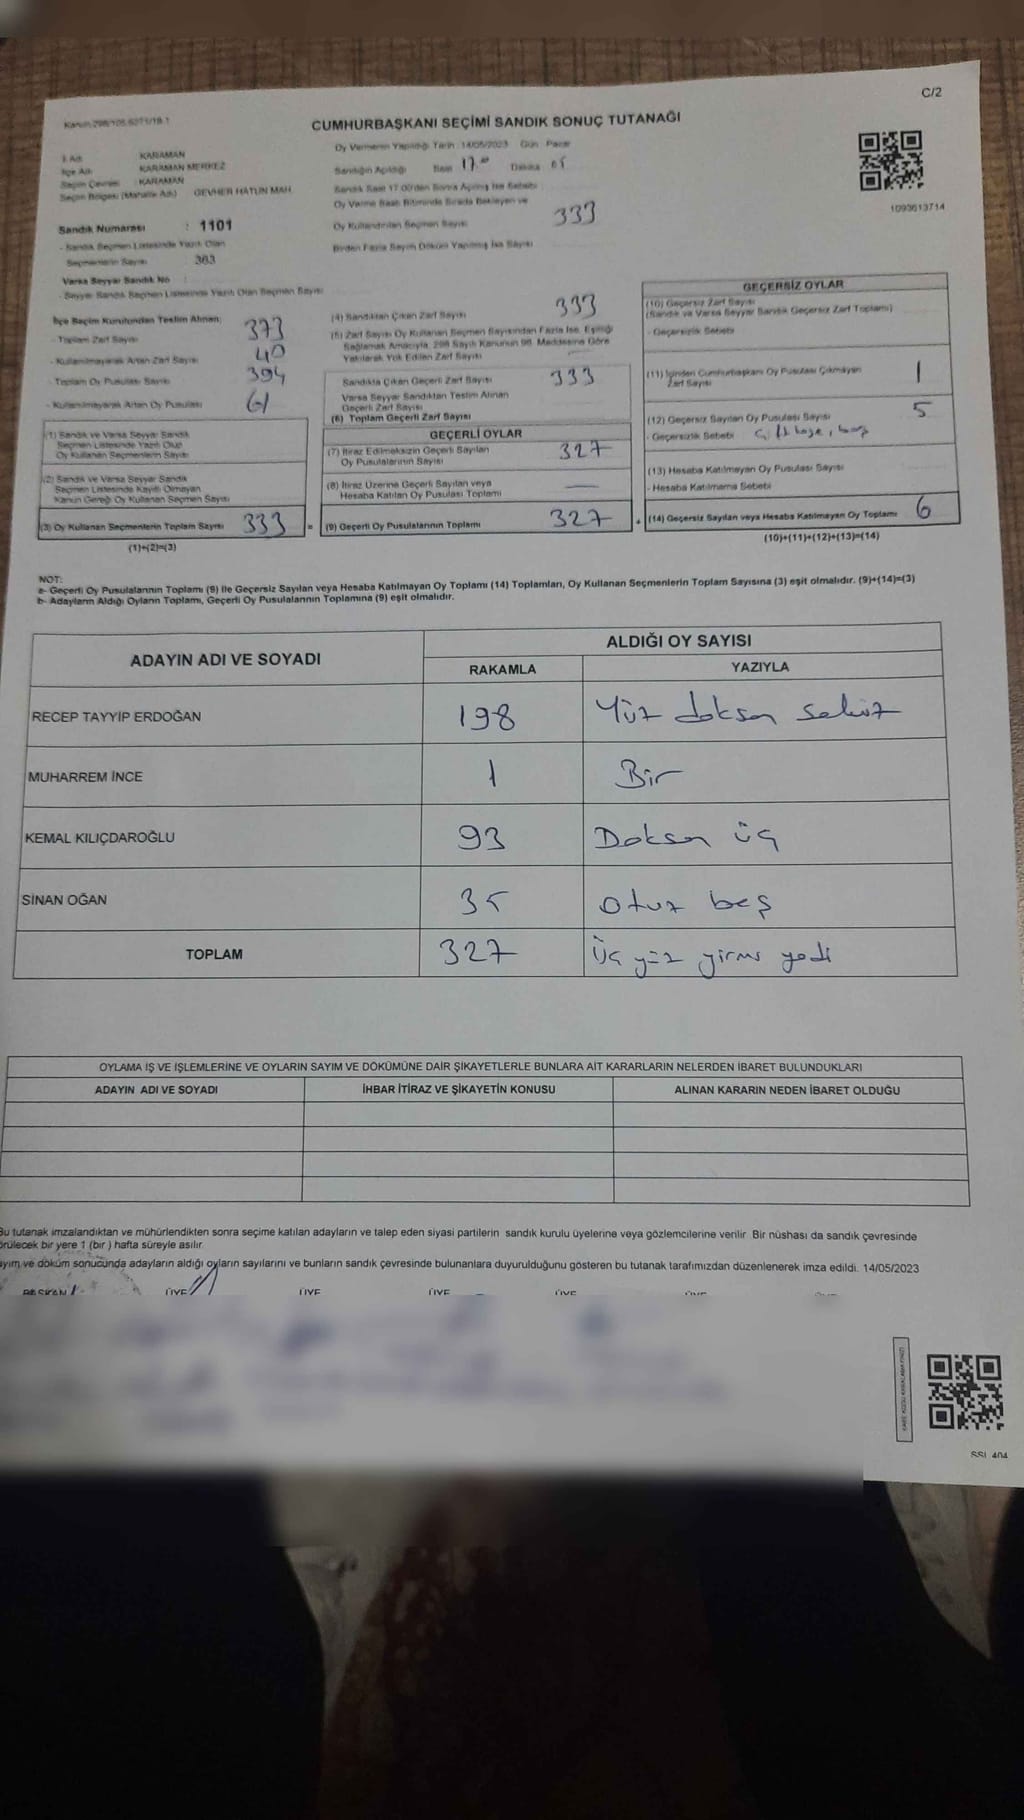 C/2
Kanun 298/105 6271/18-1
CUMHURBAŞKANI SEÇİMİ SANDIK SONUÇ TUTANAĞI
1093613714
İl Adı KARAMAN
İlçe Adı KARAMAN MERKEZ
Seçim Çevresi : KARAMAN
Seçim Bölgesi (Mahalle Adı) GEVHER HATUN MAH.
Sandık Numarası : 1101
- Sandık Seçmen Listesinde Yazılı Olan
Seçmenlerin Sayısı : 383
Varsa Seyyar Sandık No
- Seyyar Sandık Seçmen Listesinde Yazılı Olan Seçmen Sayısı
Oy Vermenin Yapıldığı Tarih : 14/05/2023 Gün Pazar
Sandığın Açıldığı Saat 17.00 Dakika 05
Sandık Saat 17:00'den Sonra Açılmış İse Sebebi
Oy Verme Saati Bitiminde Sırada Bekleyen ve
Oy Kullandırılan Seçmen Sayısı 333
Birden Fazla Sayım Döküm Yapılmış İse Sayısı
İlçe Seçim Kurulundan Teslim Alınan:
- Toplam Zarf Sayısı 373
- Kullanılmayarak Artan Zarf Sayısı 40
- Toplam Oy Pusulası Sayısı 394
- Kullanılmayarak Artan Oy Pusulası 61
(1) Sandık ve Varsa Seyyar Sandık
Seçmen Listesinde Yazılı Olup
Oy Kullanan Seçmenlerin Sayısı
(2) Sandık ve Varsa Seyyar Sandık
Seçmen Listesinde Kayıtlı Olmayan
Kanun Gereği Oy Kullanan Seçmen Sayısı
(3) Oy Kullanan Seçmenlerin Toplam Sayısı 333 =
(1)+(2)=(3)
(4) Sandıktan Çıkan Zarf Sayısı 333
(5) Zarf Sayısı Oy Kullanan Seçmen Sayısından Fazla İse, Eşitliği
Sağlamak Amacıyla, 298 Sayılı Kanunun 98. Maddesine Göre
Yakılarak Yok Edilen Zarf Sayısı —
Sandıkta Çıkan Geçerli Zarf Sayısı 333
Varsa Seyyar Sandıktan Teslim Alınan
Geçerli Zarf Sayısı
(6) Toplam Geçerli Zarf Sayısı
GEÇERLİ OYLAR
(7) İtiraz Edilmeksizin Geçerli Sayılan
Oy Pusulalarının Sayısı 327
(8) İtiraz Üzerine Geçerli Sayılan veya
Hesaba Katılan Oy Pusulası Toplamı —
(9) Geçerli Oy Pusulalarının Toplamı 327 +
GEÇERSİZ OYLAR
(10) Geçersiz Zarf Sayısı
(Sandık ve Varsa Seyyar Sandık Geçersiz Zarf Toplamı)
- Geçersizlik Sebebi
(11) İçinden Cumhurbaşkanı Oy Pusulası Çıkmayan
Zarf Sayısı 1
(12) Geçersiz Sayılan Oy Pusulası Sayısı 5
- Geçersizlik Sebebi
(13) Hesaba Katılmayan Oy Pusulası Sayısı
- Hesaba Katılmama Sebebi
(14) Geçersiz Sayılan veya Hesaba Katılmayan Oy Toplamı 6
(10)+(11)+(12)+(13)=(14)
NOT:
a- Geçerli Oy Pusulalarının Toplamı (9) ile Geçersiz Sayılan veya Hesaba Katılmayan Oy Toplamı (14) Toplamları, Oy Kullanan Seçmenlerin Toplam Sayısına (3) eşit olmalıdır. (9)+(14)=(3)
b- Adayların Aldığı Oyların Toplamı, Geçerli Oy Pusulalarının Toplamına (9) eşit olmalıdır.
ADAYIN ADI VE SOYADI ALDIĞI OY SAYISI
RAKAMLA YAZIYLA
RECEP TAYYİP ERDOĞAN 198 Yüz doksan sekiz
MUHARREM İNCE 1 Bir
KEMAL KILIÇDAROĞLU 93 Doksan üç
SİNAN OĞAN 35 otuz beş
TOPLAM 327 Üç yüz yirmi yedi
OYLAMA İŞ VE İŞLEMLERİNE VE OYLARIN SAYIM VE DÖKÜMÜNE DAİR ŞİKAYETLERLE BUNLARA AİT KARARLARIN NELERDEN İBARET BULUNDUKLARI
ADAYIN ADI VE SOYADI İHBAR İTİRAZ VE ŞİKAYETİN KONUSU ALINAN KARARIN NEDEN İBARET OLDUĞU
Bu tutanak imzalandıktan ve mühürlendikten sonra seçime katılan adayların ve talep eden siyasi partilerin sandık kurulu üyelerine veya gözlemcilerine verilir. Bir nüshası da sandık çevresinde
örülecek bir yere 1 (bir) hafta süreyle asılır.
ayım ve döküm sonucunda adayların aldığı oyların sayılarını ve bunların sandık çevresinde bulunanlara duyurulduğunu gösteren bu tutanak tarafımızdan düzenlenerek imza edildi. 14/05/2023
BAŞKAN ÜYE ÜYE ÜYE ÜYE ÜYE
SSL 404